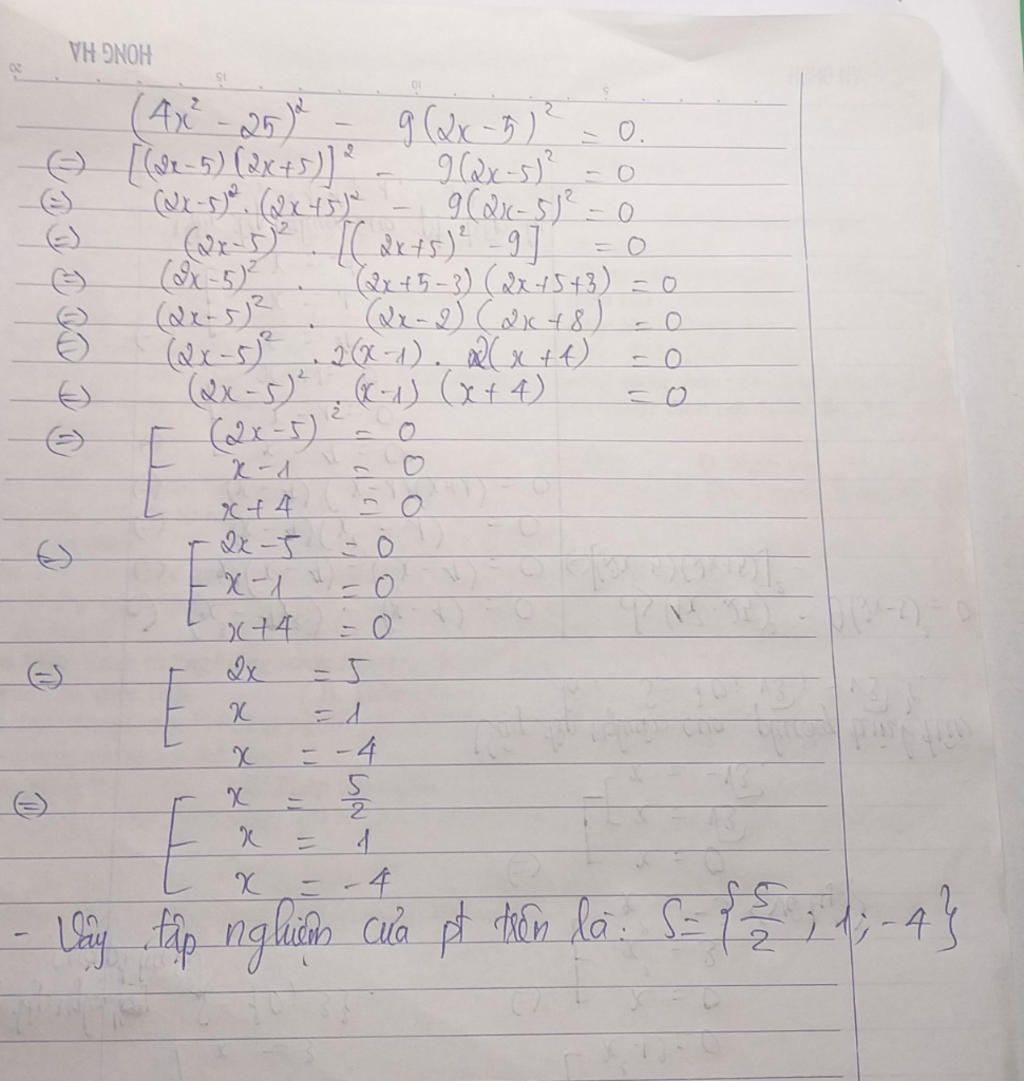 HONG HA
20 15 10 5
(4x² - 25)² - 9(2x-5)² = 0.
(=) [(2x-5)(2x+5)]² - 9(2x-5)² = 0
(=) (2x-5)².(2x+5)² - 9(2x-5)² = 0
(=) (2x-5)² . [(2x+5)² - 9] = 0
(=) (2x-5)² . (2x+5-3)(2x+5+3) = 0
(=) (2x-5)² . (2x-2)(2x+8) = 0
(=) (2x-5)² . 2(x-1) . 2(x+4) = 0
(=) (2x-5)² . (x-1) (x+4) = 0
(=) [ (2x-5)² = 0
x-1 = 0
x+4 = 0
(=) [ 2x-5 = 0
x-1 = 0
x+4 = 0
(=) [ 2x = 5
x = 1
x = -4
(=) [ x = 5/2
x = 1
x = -4
- Vậy tập nghiệm của pt trên là: S={5/2; 1; -4}